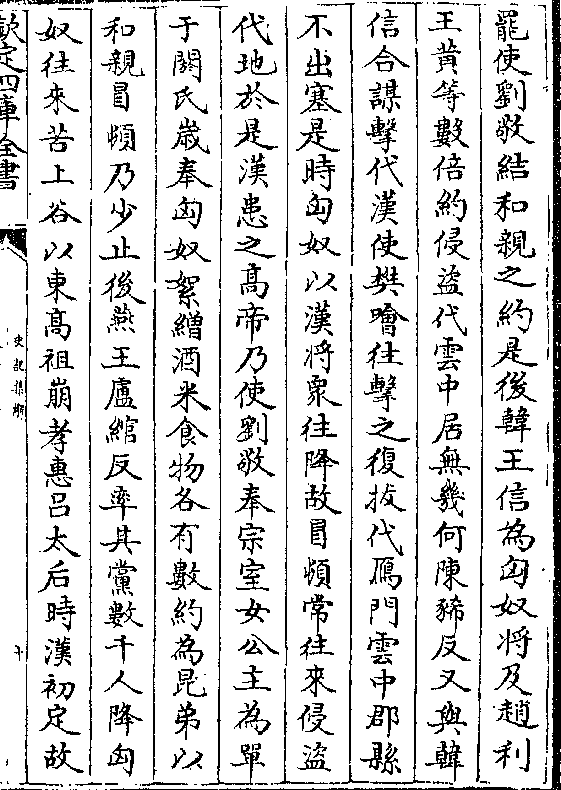 罷使劉敬結和親之約是後韓王信為匈奴將及趙利
王黄等數倍約侵盗代雲中居無幾何陳豨反又與韓
信合謀擊代漢使樊噲往擊之復拔代鴈門雲中郡縣
不出塞是時匈奴以漢將衆往降故冒頓常往來侵盗
代地於是漢患之高帝乃使劉敬奉宗室女公主為單
于閼氏歳奉匈奴絮繒酒米食物各有數約為昆弟以
和親冒頓乃少止後燕王盧綰反率其黨數千人降匈
奴往來苦上谷以東高祖崩孝惠吕太后時漢初定故
欽定四庫全書
史記集解